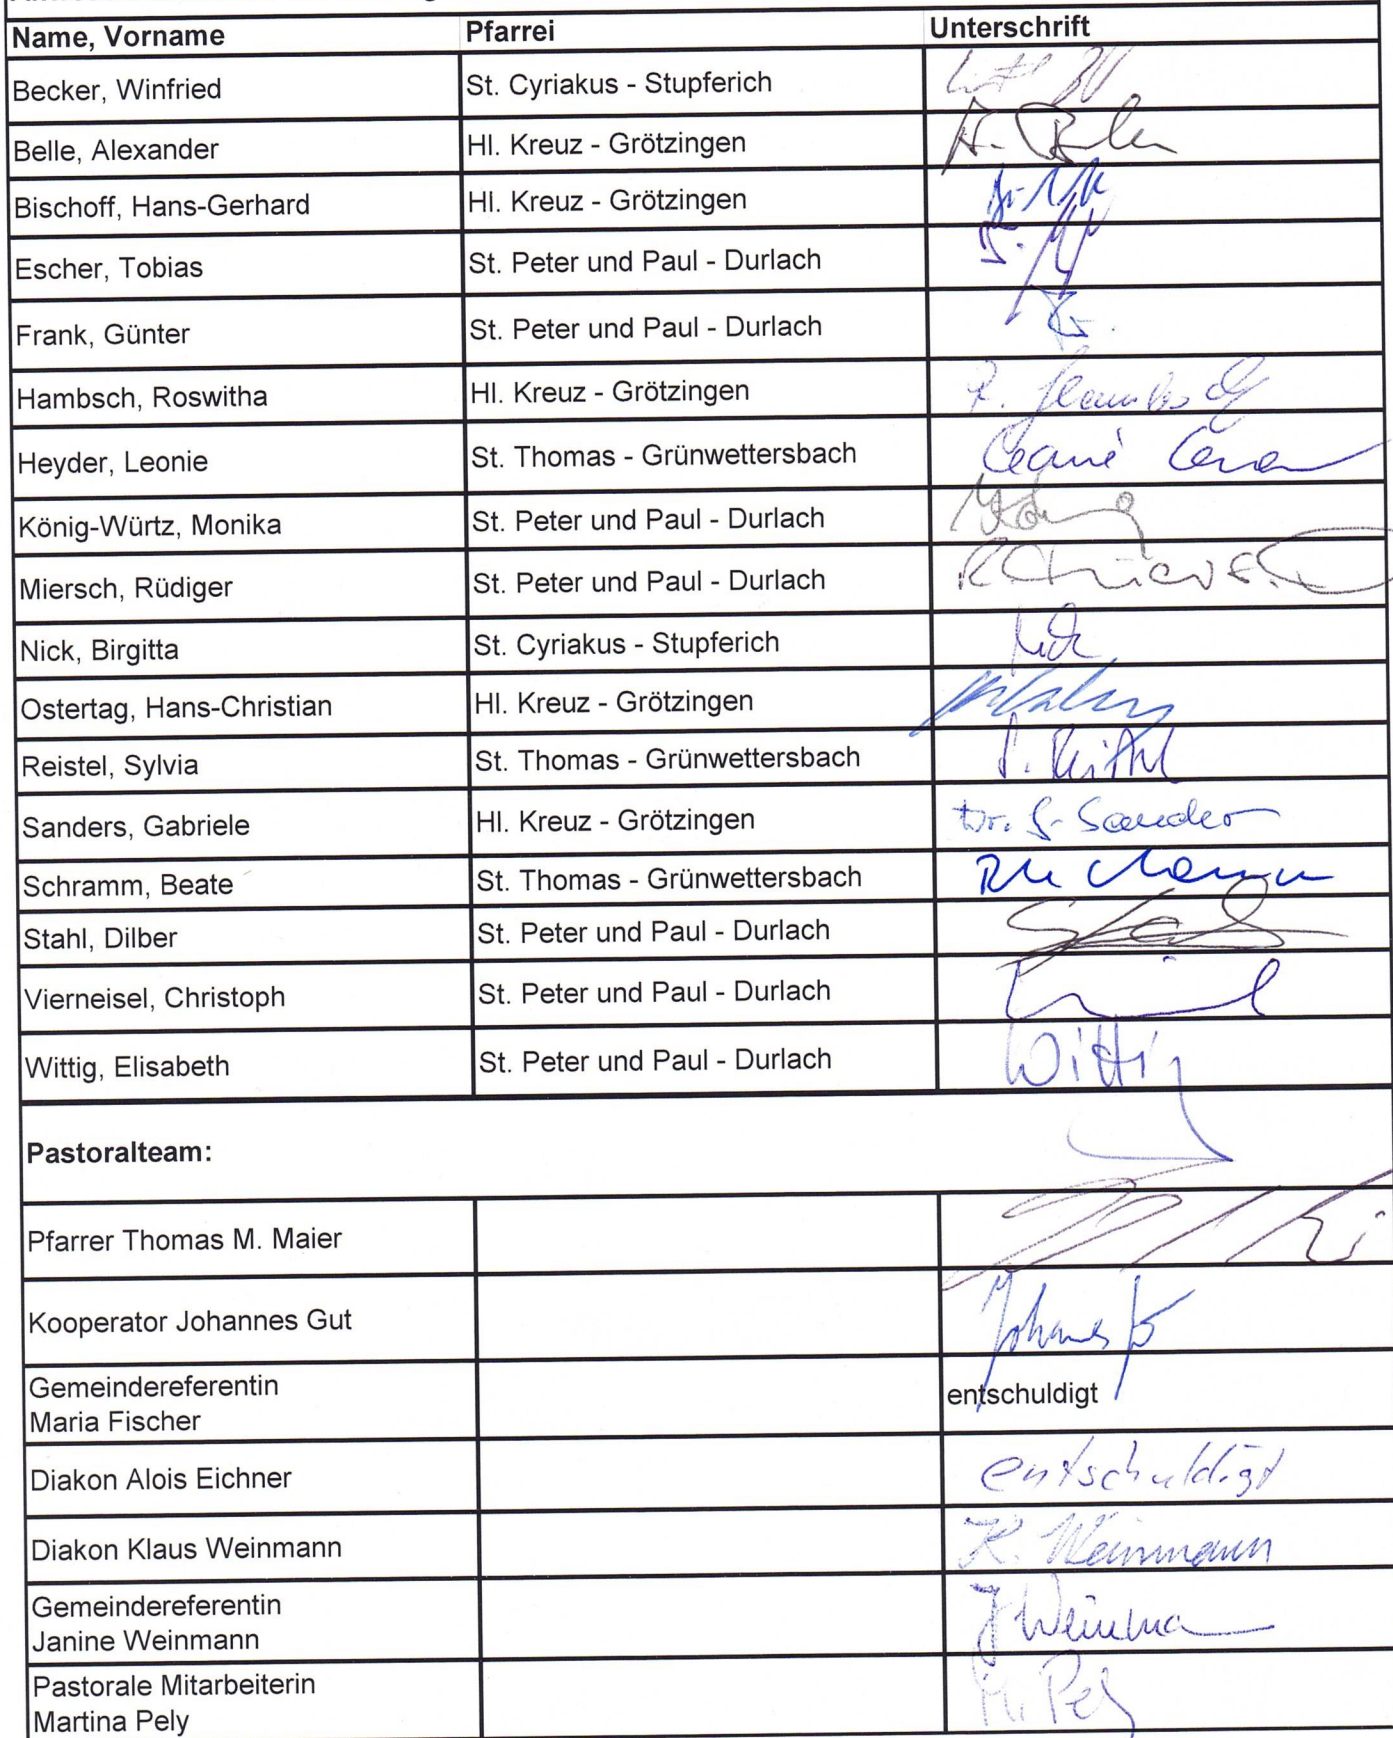 Name, Vorname Pfarrei Unterschrift
Becker, Winfried St. Cyriakus - Stupferich
Belle, Alexander Hl. Kreuz - Grötzingen
Bischoff, Hans-Gerhard Hl. Kreuz - Grötzingen
Escher, Tobias St. Peter und Paul - Durlach
Frank, Günter St. Peter und Paul - Durlach
Hambsch, Roswitha Hl. Kreuz - Grötzingen
Heyder, Leonie St. Thomas - Grünwettersbach
König-Würtz, Monika St. Peter und Paul - Durlach
Miersch, Rüdiger St. Peter und Paul - Durlach
Nick, Birgitta St. Cyriakus - Stupferich Nick
Ostertag, Hans-Christian Hl. Kreuz - Grötzingen
Reistel, Sylvia St. Thomas - Grünwettersbach S. Reistel
Sanders, Gabriele Hl. Kreuz - Grötzingen Dr. G. Sanders
Schramm, Beate St. Thomas - Grünwettersbach
Stahl, Dilber St. Peter und Paul - Durlach
Vierneisel, Christoph St. Peter und Paul - Durlach
Wittig, Elisabeth St. Peter und Paul - Durlach Wittig
Pastoralteam:
Pfarrer Thomas M. Maier
Kooperator Johannes Gut Johannes
Gemeindereferentin
Maria Fischer entschuldigt
Diakon Alois Eichner entschuldigt
Diakon Klaus Weinmann K. Weinmann
Gemeindereferentin
Janine Weinmann J Weinma
Pastorale Mitarbeiterin
Martina Pely M. Pely